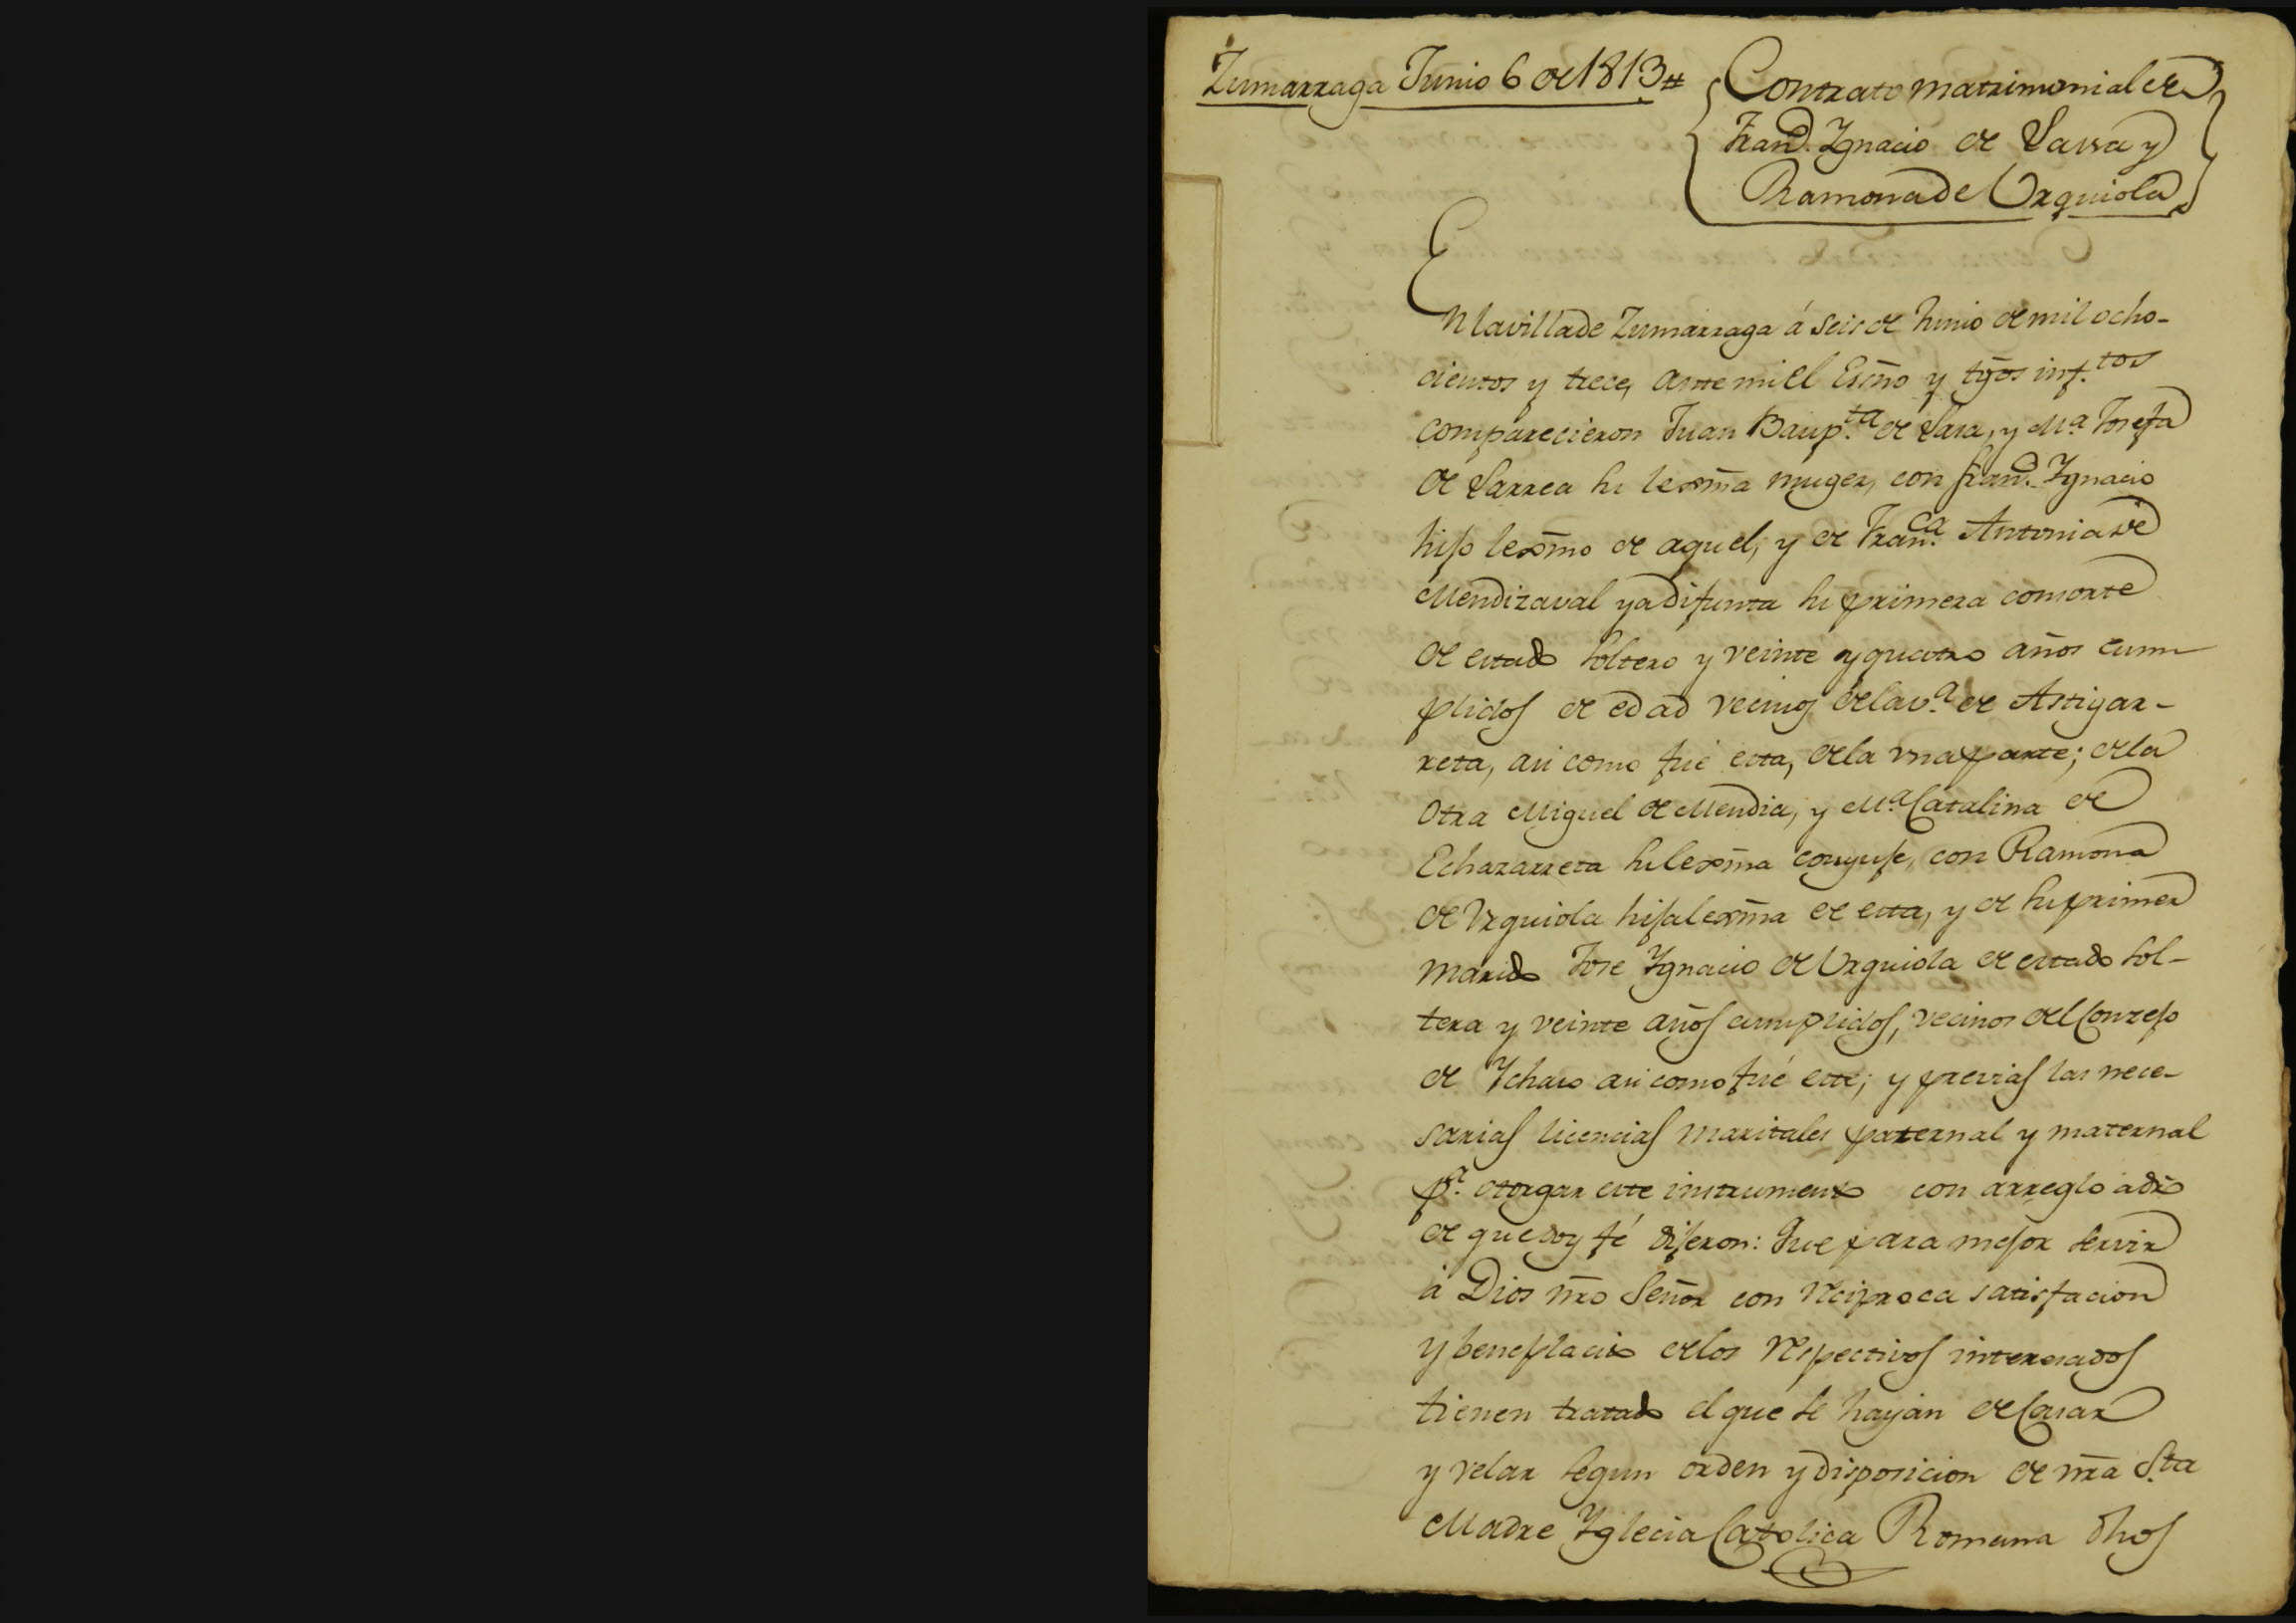 Zumarraga Junio 6 de 1813#
Contrato matrimonial de
Fran.co Ygnacio de Sasa y
Ramona de Urquiola
En la villa de Zumarraga á seis de Junio de mil ocho-
cientos y trece, ante mi el Esc̄no y tg̃os inf.tos
comparecieron Juan Baup.ta de Sasa, y M.a Josefa
de Larrea su lexm̄a muger, con Fran.co Ygnacio
hijo lexm̄o de aquel, y de Fran.ca Antonia de
Mendizaval ya difunta su primera consorte
de estado soltero y veinte y quatro años cum
plidos de edad vecinos de la v.a de Astigar-
reta, asi como fué esta, de la una parte; de la
otra Miguel de Mendia, y M.a Catalina de
Echazarreta su lexm̄a conyuje, con Ramona
de Urquiola hija lexm̄a de esta, y de su primer
marido Jose Ygnacio de Urquiola de estado sol-
tera y veinte años cumplidos, vecinos del Conzejo
de Ychaso asi como fué este; y previas las nece-
sarias licencias maritales paternal y maternal
p.a otorgar este instrumento con arreglo a dr̄o
de que doy fé dijeron: Que para mejor servir
á Dios nr̄o Señor con reciproca satisfacion
y beneplacito de los respectivos interesados
tienen tratado el que se hayan de Casar
y velar segun orden y disposicion de nr̄a S.ta
Madre Yglecia Catolica Romana dhos